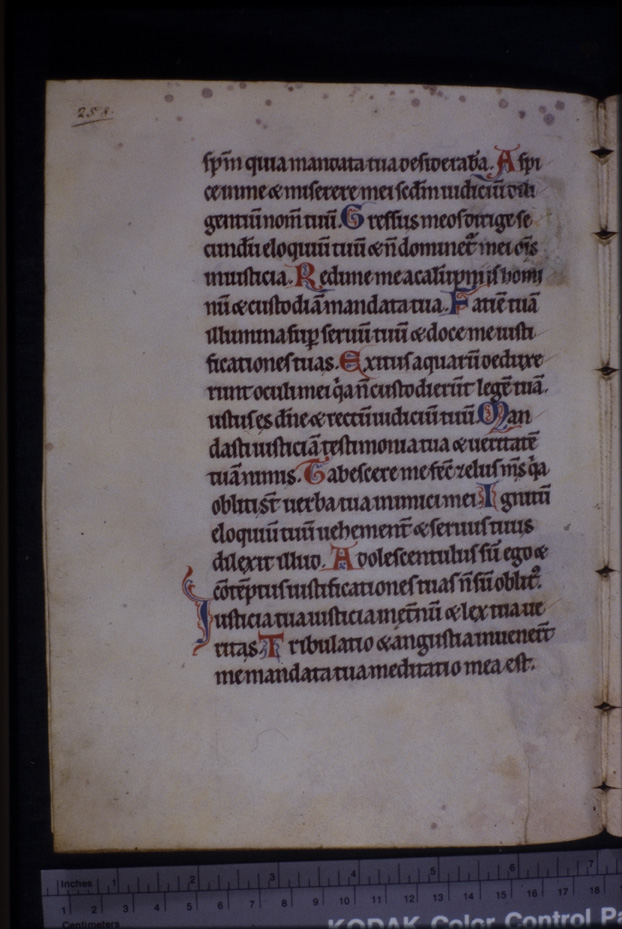 258.
spm̄ quia mandata tua desiderab̄a. Aspi
ce in me & miserere mei scd̄m iudiciū dili
gentiū nom̄ tuū. Gressus meos dirige se
cundū eloquiū tuū & n̄ dominet᷑ mei om̄s
iniusticia. Redime me a calūpniis homi
nū & custodiā mandata tua. Faciē tuā
illumina sup̄ seruū tuū & doce me iusti
ficationes tuas. Exitus aquarū deduxe
runt oculi mei q̇a n̄ custodierūt legē tuā.
iustus es dn̄e & rectū iudiciū tuū. Man
dasti iusticiā testimonia tua & ueritatē
tuā nimis. Tabescere me fec̄ zelus m̄s q̇a
obliti st̄ uerba tua inimici mei. Ignitū
eloquiū tuū uehement̄ & seruus tuus
dilexit illud. Adolescentulus sū ego &
cōtēptus iustificationes tuas n̄ sū oblit᷒.
Iusticia tua iusticia inet̄nū & lex tua ue
ritas. Tribulatio & angustia inuener̄t
me mandata tua meditatio mea est.
Inches 1 2 3 4 5 6 7
1 2 3 4 5 6 7 8 9 10 11 12 13 14 15 16 17 18
Centimeters
KODAK Color Control Pa